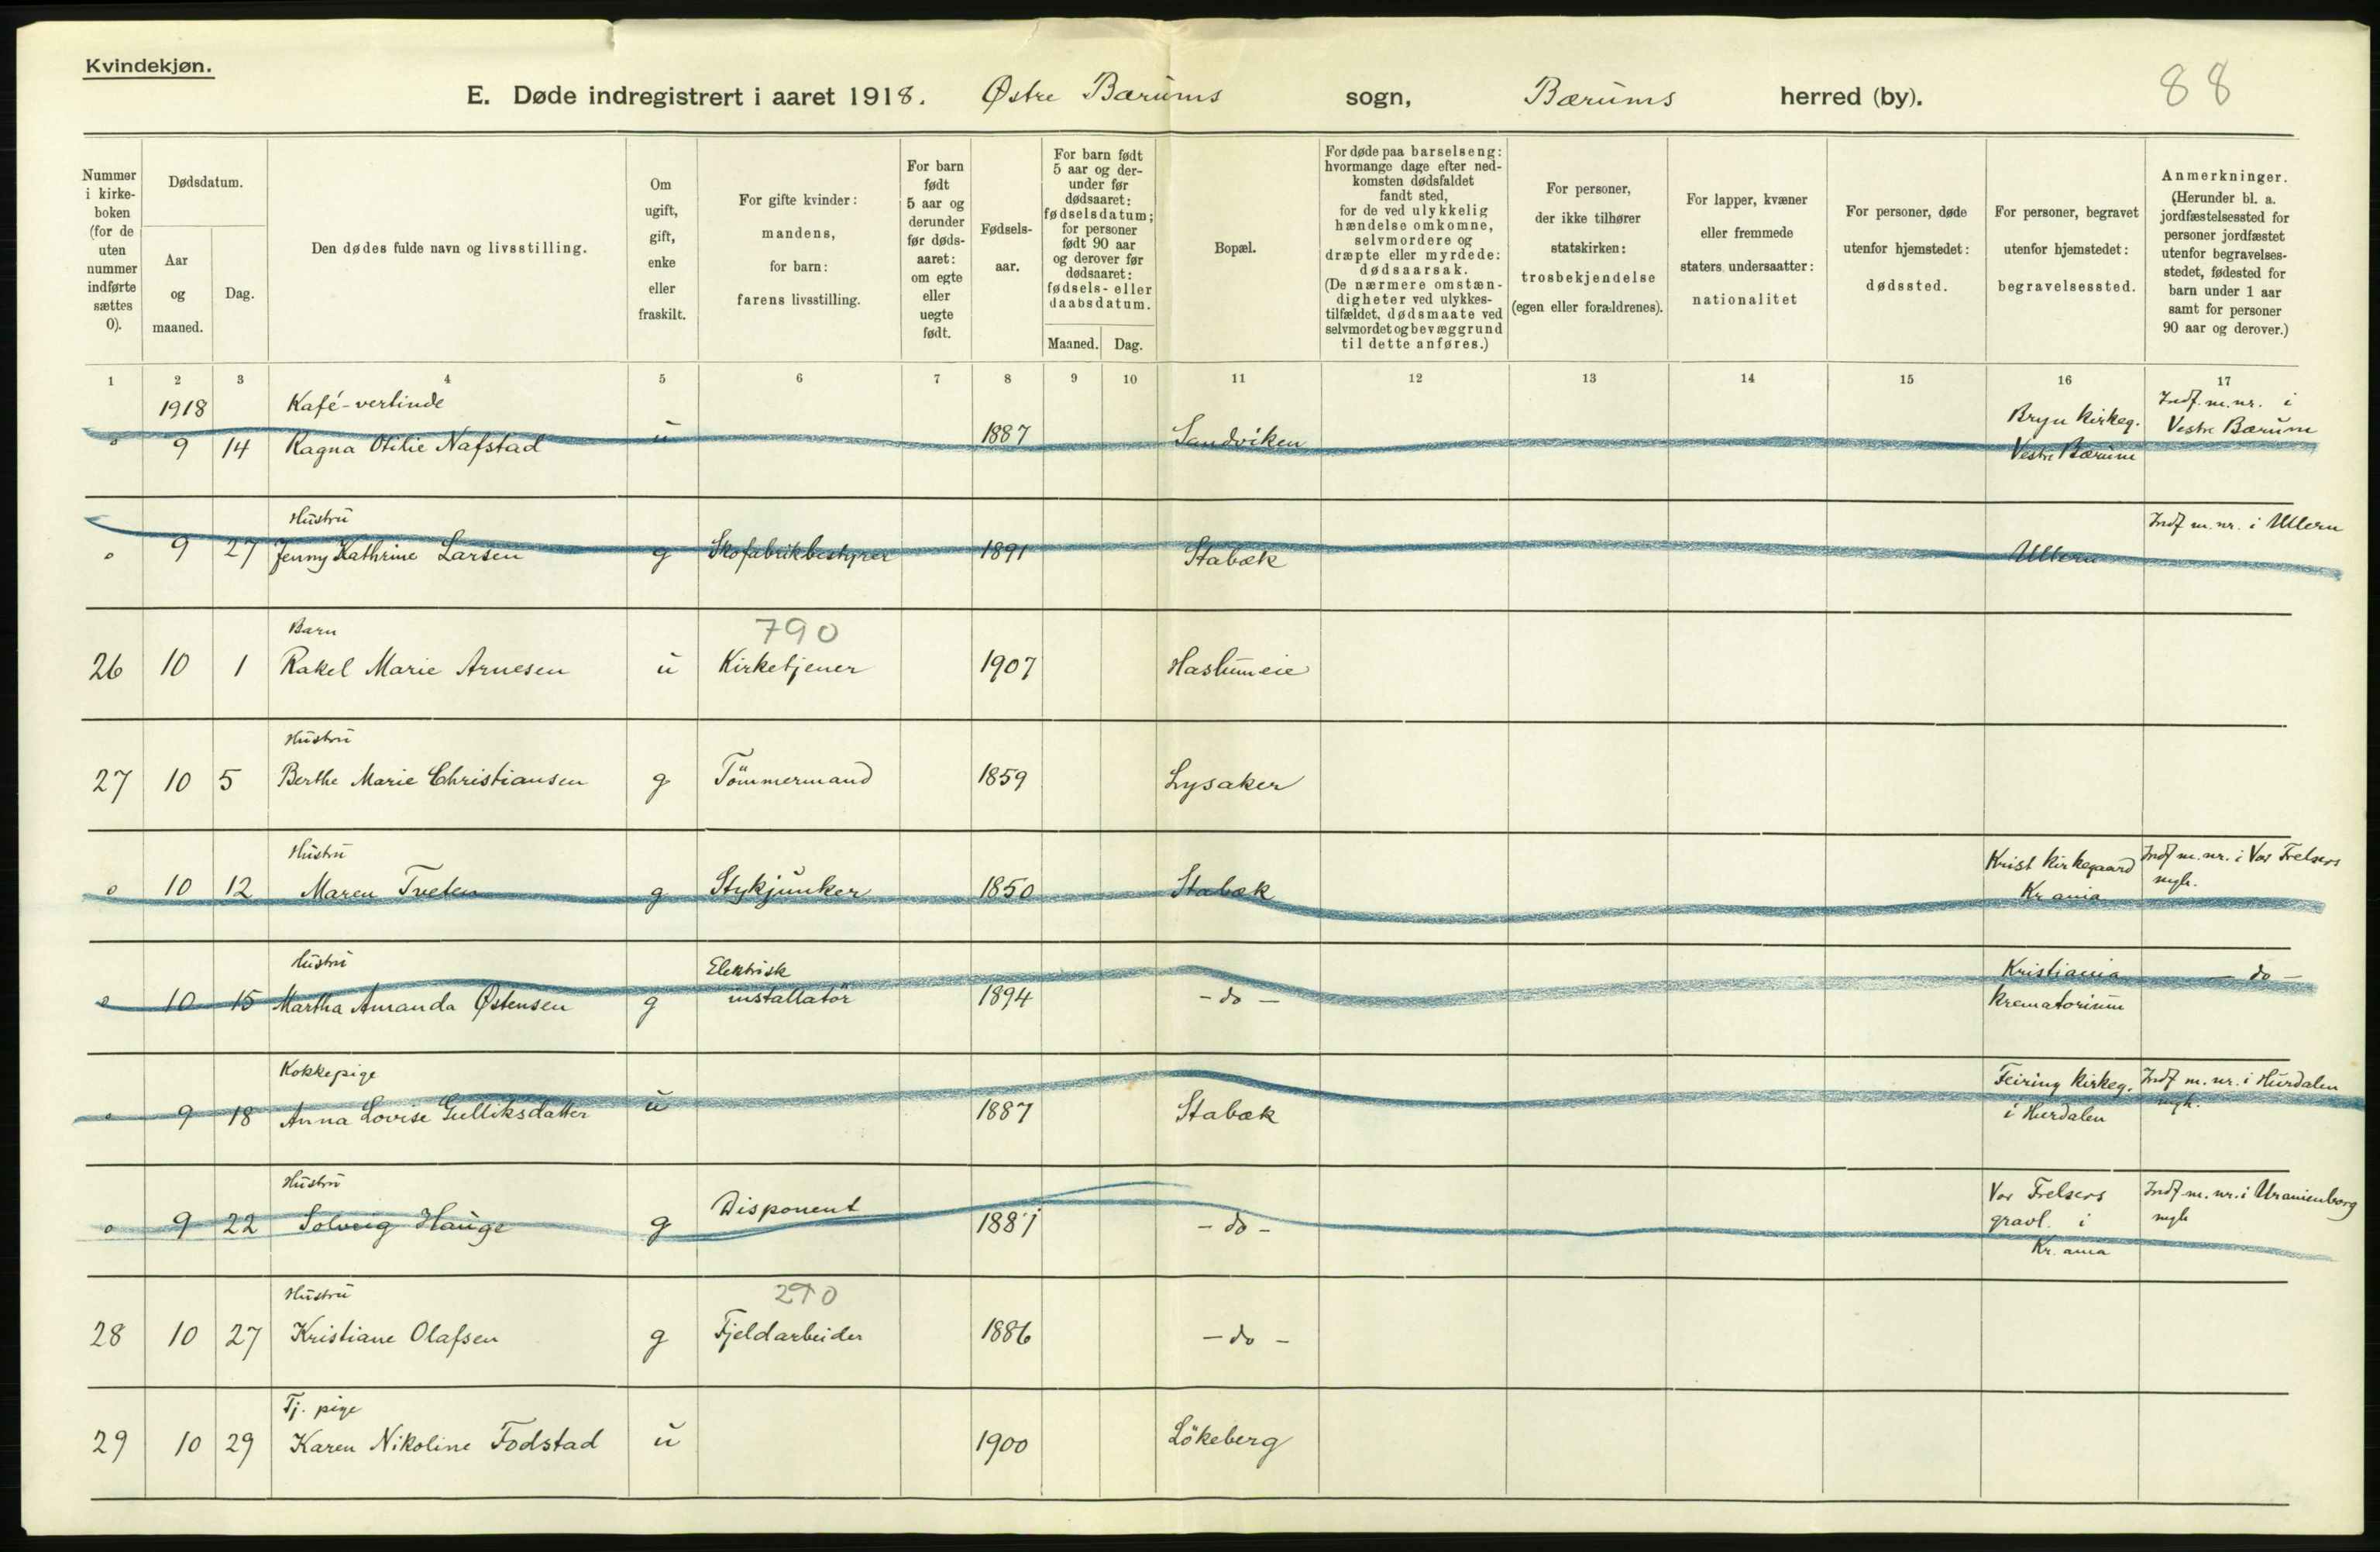 Kvindekjøn.
E. Døde indregistrert i aaret 1918. Østre Bærums sogn, Bærums herred (by).
88
Nummer i kirke-boken (for de uten nummer indførte sættes 0).
Dødsdatum.
Aar og maaned.
Dag.
Den dødes fulde navn og livsstilling.
Om ugift, gift, enke eller fraskilt.
For gifte kvinder: mandens, for barn: farens livsstilling.
For barn født 5 aar og derunder før døds-aaret: om egte eller uegte født.
Fødsels-aar.
For barn født 5 aar og der-under før dødsaaret: fødselsdatum; for personer født 90 aar og derover før dødsaaret: fødsels- eller daabsdatum.
Maaned. Dag.
Bopæl.
For døde paa barselseng: hvormange dage efter ned-komsten dødsfaldet fandt sted, for de ved ulykkelig hændelse omkomne, selvmordere og dræpte eller myrdede: dødsaarsak. (De nærmere omstæn-digheter ved ulykkes-tilfældet, dødsmaate ved selvmordet og bevæggrund til dette anføres.)
For personer, der ikke tilhører statskirken: trosbekjendelse (egen eller forældrenes).
For lapper, kvæner eller fremmede staters undersaatter: nationalitet
For personer, døde utenfor hjemstedet: dødssted.
For personer, begravet utenfor hjemstedet: begravelsessted.
Anmerkninger. (Herunder bl. a. jordfæstelsessted for personer jordfæstet utenfor begravelses-stedet, fødested for barn under 1 aar samt for personer 90 aar og derover.)
1 2 3 4 5 6 7 8 9 10 11 12 13 14 15 16 17
1918 Kafé-vertinde Indf. m. nr. i
o 9 14 Ragna Otilie Nafstad u 1887 Sandviken Bryn Kirkeg. Vestre Bærum
Vestre Bærum
Hustru Indf m. nr. i Ullern
o 9 27 Jenny Kathrine Larsen g Skofabrikbestyrer 1891 Stabæk Ullern
Barn 790
26 10 1 Rakel Marie Arnesen u Kirketjener 1907 Haslumeie
Hustru
27 10 5 Berthe Marie Christiansen g Tömmermand 1859 Lysaker
Hustru Krist Kirkegaard Indf m. nr. i Vor Frelsers
o 10 12 Maren Tveten g Stykjunker 1850 Stabæk Kr. ania mgh.
Hustru Elektrisk Kristiania - do -
o 10 15 Martha Amanda Østensen g installatör 1894 - do - Krematorium
Kokkepige Feiring Kirkeg. Indf m. nr. i Hurdalen
o 9 18 Anna Lovise Gulliksdatter u 1887 Stabæk i Hurdalen mgh.
Hustru Vor Frelsers Indf m. nr. i Uranienborg
o 9 22 Solveig Hauge g Disponent 1881 - do - gravl. i mgh
Kr. ania
Hustru 290
28 10 27 Kristiane Olafsen g Fjeldarbeider 1886 - do -
Tj. pige
29 10 29 Karen Nikoline Fodstad u 1900 Lökeberg